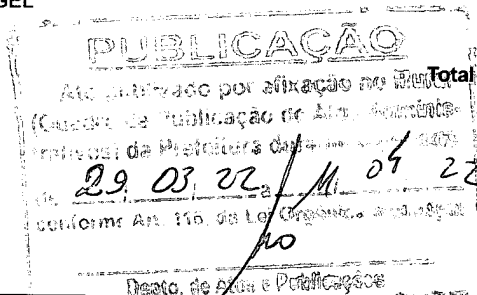 GEL
PUBLICAÇÃO
Total
Ato publicado por afixação no Mural
(Quadro de Publicação de Atos Adminis-
trativos) da Prefeitura
de 29, 03, 22 a 11 04 22
conforme Art. 116, da Lei Orgânica
Depto. de Atos e Publicações